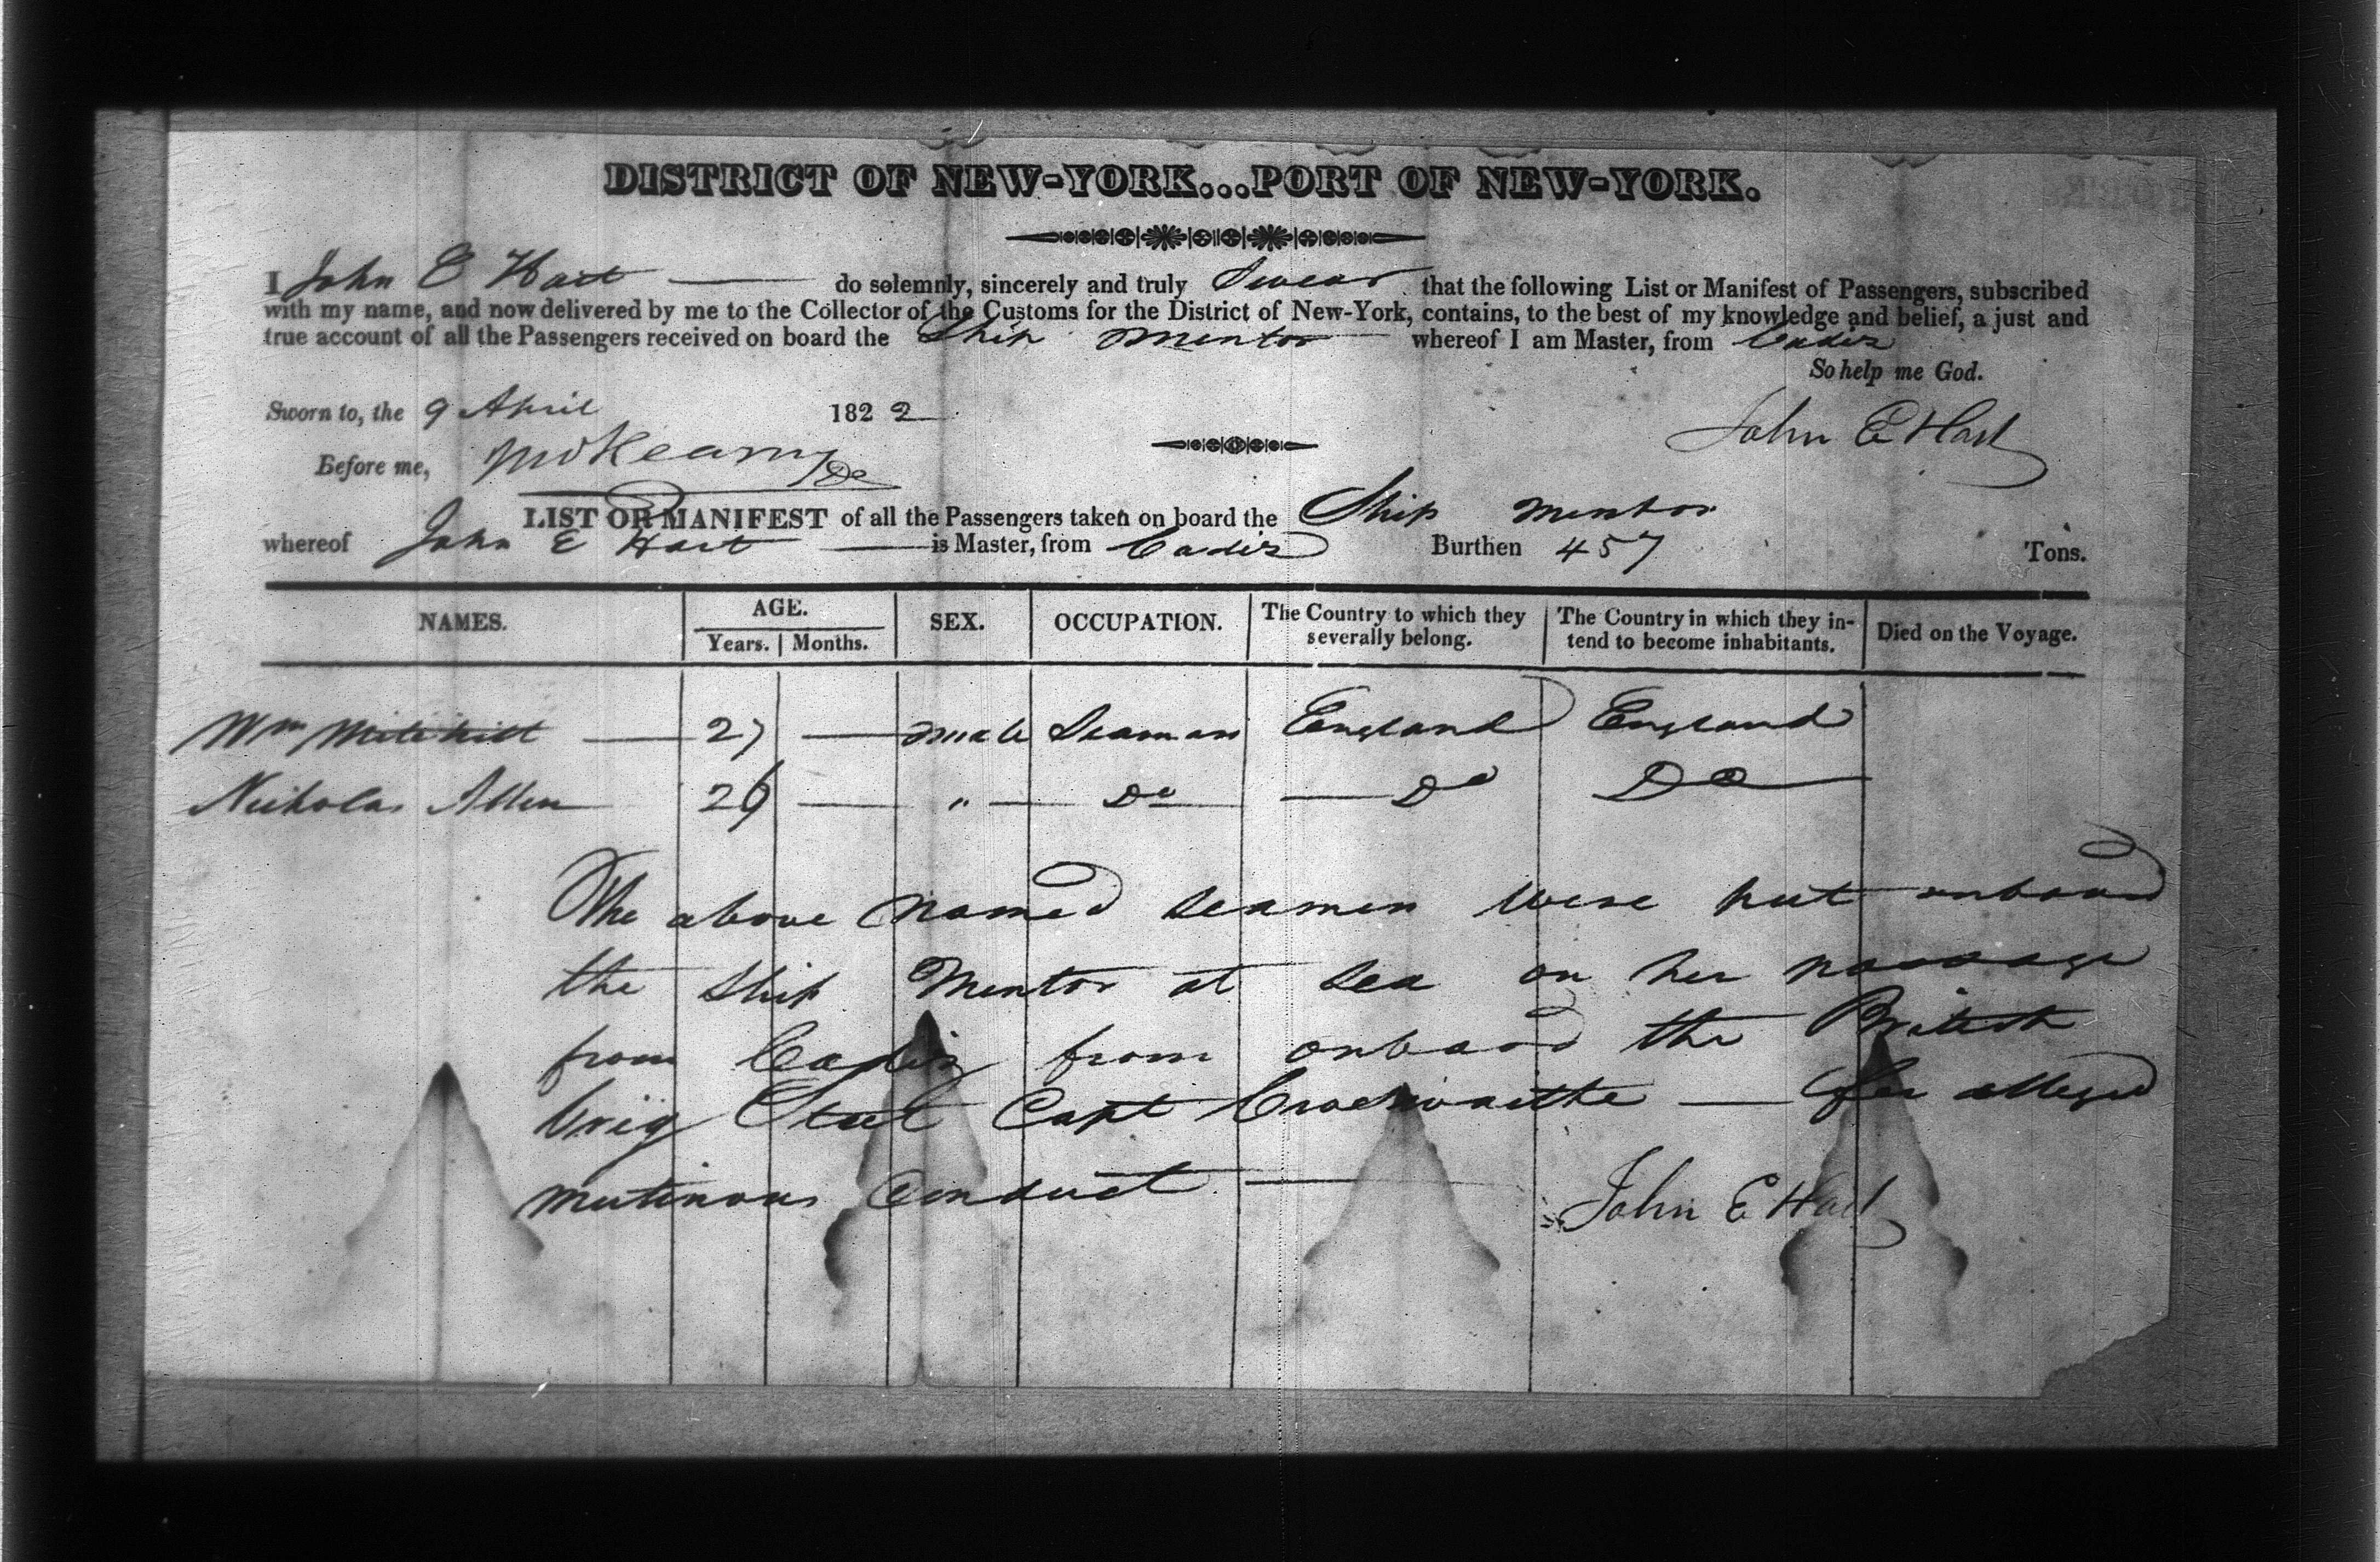 DISTRICT OF NEW-YORK...PORT OF NEW-YORK.
I John E Hart do solemnly, sincerely and truly Swear that the following List or Manifest of Passengers, subscribed
with my name, and now delivered by me to the Collector of the Customs for the District of New-York, contains, to the best of my knowledge and belief, a just and
true account of all the Passengers received on board the Ship Mentor whereof I am Master, from Cadiz
So help me God.
Sworn to, the 9 April 1822
John E Hart
Before me,
LIST OR MANIFEST of all the Passengers taken on board the Ship Mentor
whereof John E Hart is Master, from Cadiz Burthen 457 Tons.
NAMES. AGE. Years. Months. SEX. OCCUPATION. The Country to which they severally belong. The Country in which they intend to become inhabitants. Died on the Voyage.
Wm Mitchill 27 male Seaman England England
Nicholas Allen 26 " Do Do Do
The above Named Seamen were put onboard
the Ship Mentor at Sea on her passage
from Cadiz from onboard the British
brig Capt for alleged
mutinous Conduct
John E Hart